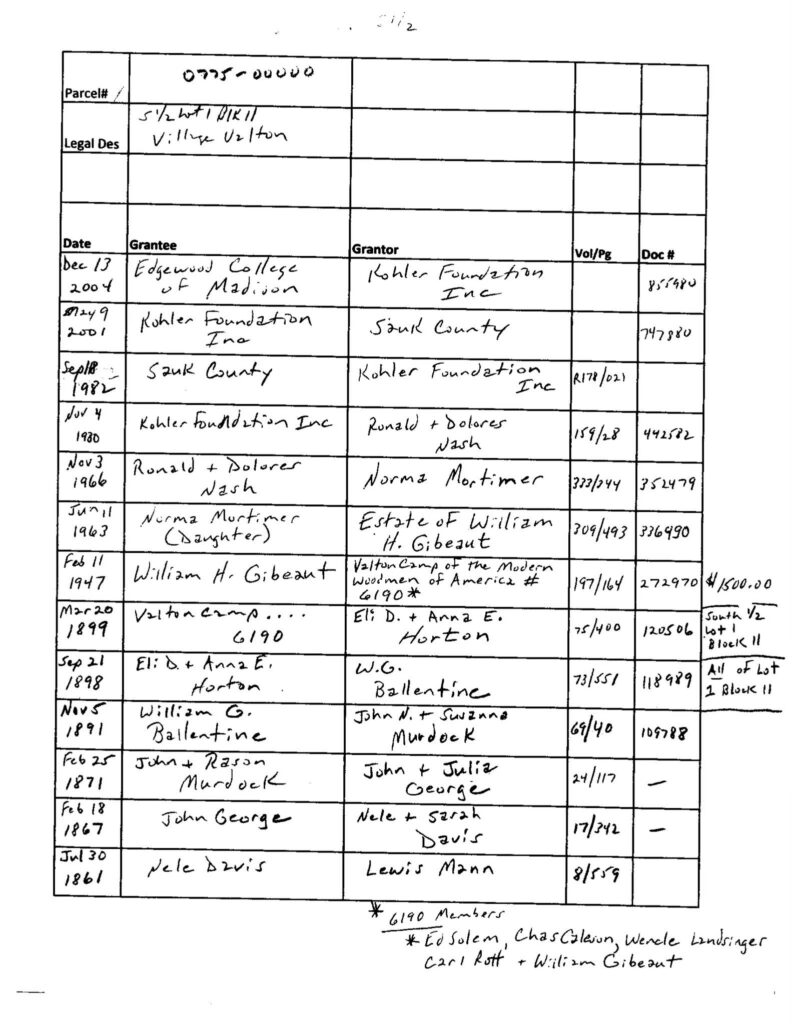 S1/2
Parcel# 0775-00000
Legal Des S 1/2 Lot 1 Blk 11
Village Valton
Date Grantee Grantor Vol/Pg Doc #
Dec 13 2004 Edgewood College of Madison Kohler Foundation Inc 855980
May 9 2001 Kohler Foundation Inc Sauk County 747880
Sep 18 1982 Sauk County Kohler Foundation Inc R178/021
Nov 4 1980 Kohler Foundation Inc Ronald + Dolores Nash 159/28 442582
Nov 3 1966 Ronald + Dolores Nash Norma Mortimer 333/344 352479
Jun 11 1963 Norma Mortimer (Daughter) Estate of William H. Gibeaut 309/493 336490
Feb 11 1947 William H. Gibeaut Valton Camp of the Modern Woodmen of America # 6190* 197/164 272970 $1500.00
Mar 20 1899 Valton Camp.... 6190 Eli D. + Anna E. Horton 75/400 120506 South 1/2 Lot 1 Block 11
Sep 21 1898 Eli D. + Anna E. Horton W.G. Ballentine 73/551 118989 All of Lot 1 Block 11
Nov 5 1891 William G. Ballentine John N. + Suzanna Murdock 69/40 109788
Feb 25 1871 John + Rason Murdock John + Julia George 24/117 —
Feb 18 1867 John George Nele + Sarah Davis 17/342 —
Jul 30 1861 Nele Davis Lewis Mann 8/559
* 6190 Members
* Ed Solem, Chas Caleson, Wencle Landsinger
Carl Rott + William Gibeaut